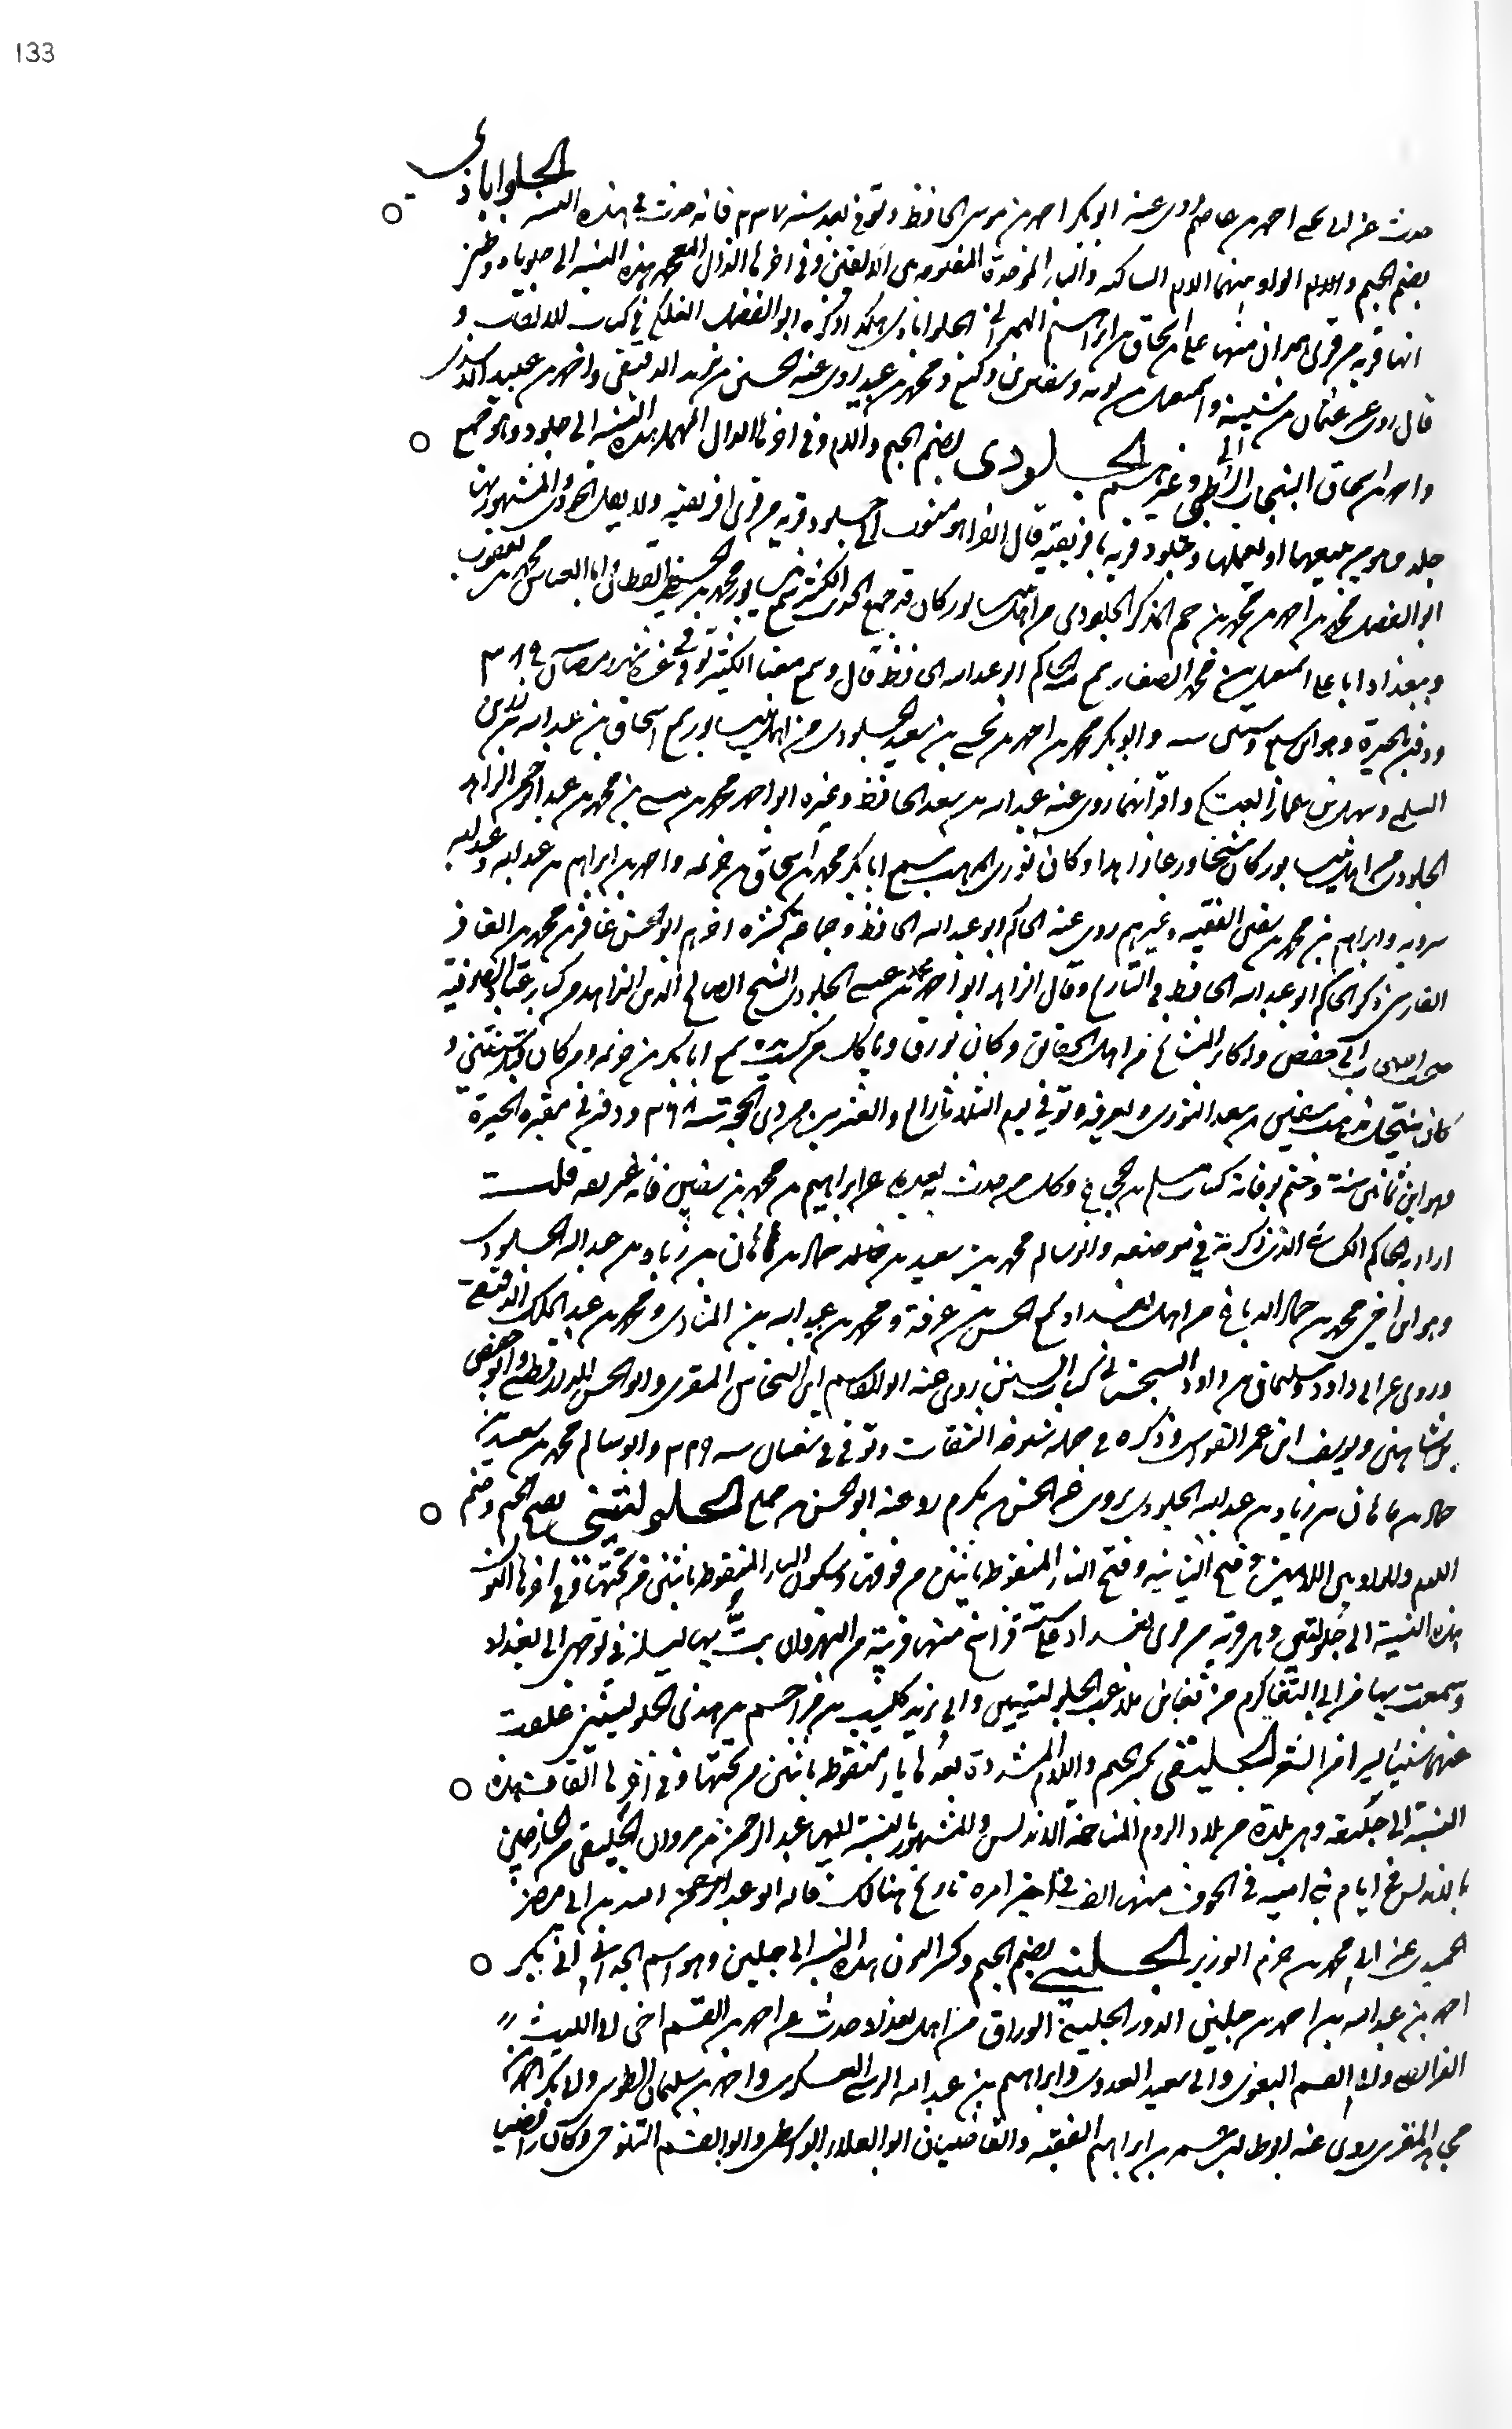 133
حدث عن ابي علي احمد بن عاصم روى عنه ابو بكر احمد بن موسى الحافظ وتوفي بعد سنه ٣٣٧ فانه حدث في هذه السنه الجلواباذي
بضم الجيم واللام الواو بينهما اللام الساكنه والباء الموحدة المفتوحه بين الالفين وفي اخرها الذال المعجمه هذه النسبه الى جلوباذ وظني
انها قريه من قرى همدان منها علي بن اسحاق بن ابراهيم الهمداني الجلواباذي هكذا ذكره ابو الفضل الفلكي في كتاب الالقاب و
قال روى عن عثمان بن شيبة واسمعيل بن توبه وسفين بن وكيع ومحمد بن عبيد روى عنه الحسن بن يزيد الدقيقي واحمد بن عبيد الاسدي
واحمد بن اسحاق بن الطيبي وغيرهم الجلودي بضم الجيم واللام وفي اخرها الدال المهمله هذه النسبه الى جلود وهو جمع
جلد وهو من يبيعها او يعملها وجلود قريه بافريقيه قال الفرا هو منسوب الى جلود قريه من قرى افريقيه ولا يقال الجلودي والمشهور بها
ابو الفضل محمد بن احمد بن محمد بن حم المذكر الجلودي من اهل نيسابور كان قد جمع الحديث الكثير سمع بنيسابور محمد بن الحسين القطان وابا العباس محمد بن يعقوب
وببغداد ابا علي اسمعيل بن محمد الصفار سمع منه الحاكم ابو عبد الله الحافظ قال وسمع معنا الكثير توفي غره شهر رمضان ٣٨٩
ودفن بالحيرة وهو ابن سبع وستين سنه وابو بكر محمد بن احمد بن يحيى بن سعيد الجلودي من اهل نيسابور سمع اسحاق بن عبد الله بن رزين
السلمي وسهل بن عمار العتكي واقرانهما روى عنه عبد الله بن سعد الحافظ وغيره ابو احمد محمد بن عيسى بن محمد بن عبد الرحمن الزاهد
الجلودي من اهل نيسابور كان شيخا ورعا زاهدا وكان ثوري المذهب سمع ابا بكر محمد بن اسحاق بن خزيمه واحمد بن ابراهيم بن عبد الله وعبد الله
سرويه وابراهيم بن محمد بن سفين الفقيه وغيرهم روى عنه الحاكم ابو عبد الله الحافظ وجماعة كثيره اخرهم ابو الحسين عبد الغافر بن محمد بن الغافر
الفارسي ذكر الحاكم ابو عبد الله الحافظ في التاريخ وقال الزاهد ابو احمد محمد بن عيسى الجلودي الشيخ الصالح الدين الزاهد من كبار عباد الصوفية
صحب اصحاب ابي حفص واكابر المشائخ من اهل الحقائق وكان يورق وياكل من كسب يده سمع ابا بكر بن خزيمه ومن كان قبله بسنتين و
كان ينتحل مذهب سفين بن سعيد الثوري ويعرفه وتوفي يوم الثلاثا الرابع والعشرين من ذي الحجة سنة ٣٦٨ ودفن في مقبرة الحيرة
وهو ابن ثمانين سنة وختم بوفاته كتاب مسلم بن حجاج وكل من حدث به بعده عن ابراهيم بن محمد بن سفين فانه غير ثقه قلت
اراد به الحاكم الكسائي الذي ذكرته في موضعه وابو سالم محمد بن سعيد بن حماد بن ماهان بن زياد بن عبد الله الجلودي
وهو ابن اخي محمد بن حماد الدباغ من اهل بغداد سمع الحسن بن عرفة ومحمد بن عبيد الله بن المنادي ومحمد بن عبد الملك الدقيقي
وروى عن ابي داود سليمان بن داود السجستاني كتاب السنن روى عنه ابو القاسم ابن النخاس المقري وابو الحسن الدارقطني وابو حفص
بن شاهين ويوسف ابن عمر القواس وذكره في جمله شيوخه الثقات وتوفي في شعبان سنه ٣٢٩ وابو سالم محمد بن سعيد بن
حماد بن ماهان بن زياد بن عبد الله الجلودي يروى عن الحسن بن مكرم روى عنه ابو الحسن بن جميع الجلولتيني بفتح الجيم وضم
اللام والواو بين اللامين وفتح الثانيه وفتح التاء المنقوطه باثنتين من فوقها وسكون الياء المنقوطه باثنتين من تحتها وفي اخرها النون
هذه النسبة الى جلولتين وهي قريه من قرى بغداد على ستة فراسخ منها قريبة من النهروان بت بها ليلة في توجهي الى بغداد
وسمعت بها من ابي البقا كرم بن بقا بن ملاعب الجلولتيني وابي يزيد كليب بن مزاحم بن مهدي الجلولتيني علقت
عنهما شيئا يسيرا من الشعر الجليقي بكسر الجيم واللام المشددة بعدها ياء منقوطه باثنتين من تحتها وفي اخرها القاف هذه
النسبة الى جليقه وهي بلدة من بلاد الروم المتاخمة للاندلس والمشهور بالنسبة اليها عبد الرحمن بن مروان الجليقي من الخارجين
بالاندلس في ايام بني اميه في الحروف منها الف في اخبار امره تاريخ هناك قاله ابو عبد الله بن ابي نصر
الحميدي عن ابي محمد بن حزم الوزير الجليني بضم الجيم وكسر النون هذه النسبه الى جلين وهو اسم لجد ابي بكر
احمد بن عبد الله بن احمد بن جلين الدوري الجليني الوراق من اهل بغداد حدث عن احمد بن القاسم اخي ابي الليث
الفرائضي وابي القسم البغوي وابي سعيد العدوي وابراهيم بن عبد الله الزبيبي العسكري واحمد بن سليمان الطوسي وابي بكر احمد بن
مجاهد المقري روى عنه ابو طالب عمر بن ابراهيم الفقيه والقاضيان ابو العلاء الواسطي وابو القسم التنوخي وكان رافضيا